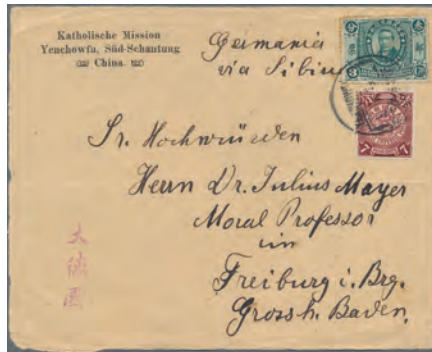 Katholische Mission
Yenchowfu, Süd-Schantung
China.
Germania
via Sibirien
3
7
7
Sr. Hochwürden
Herrn Dr. Julius Mayer
Moral Professor
in
Freiburg i. Brg.
Grossh. Baden.
大德國